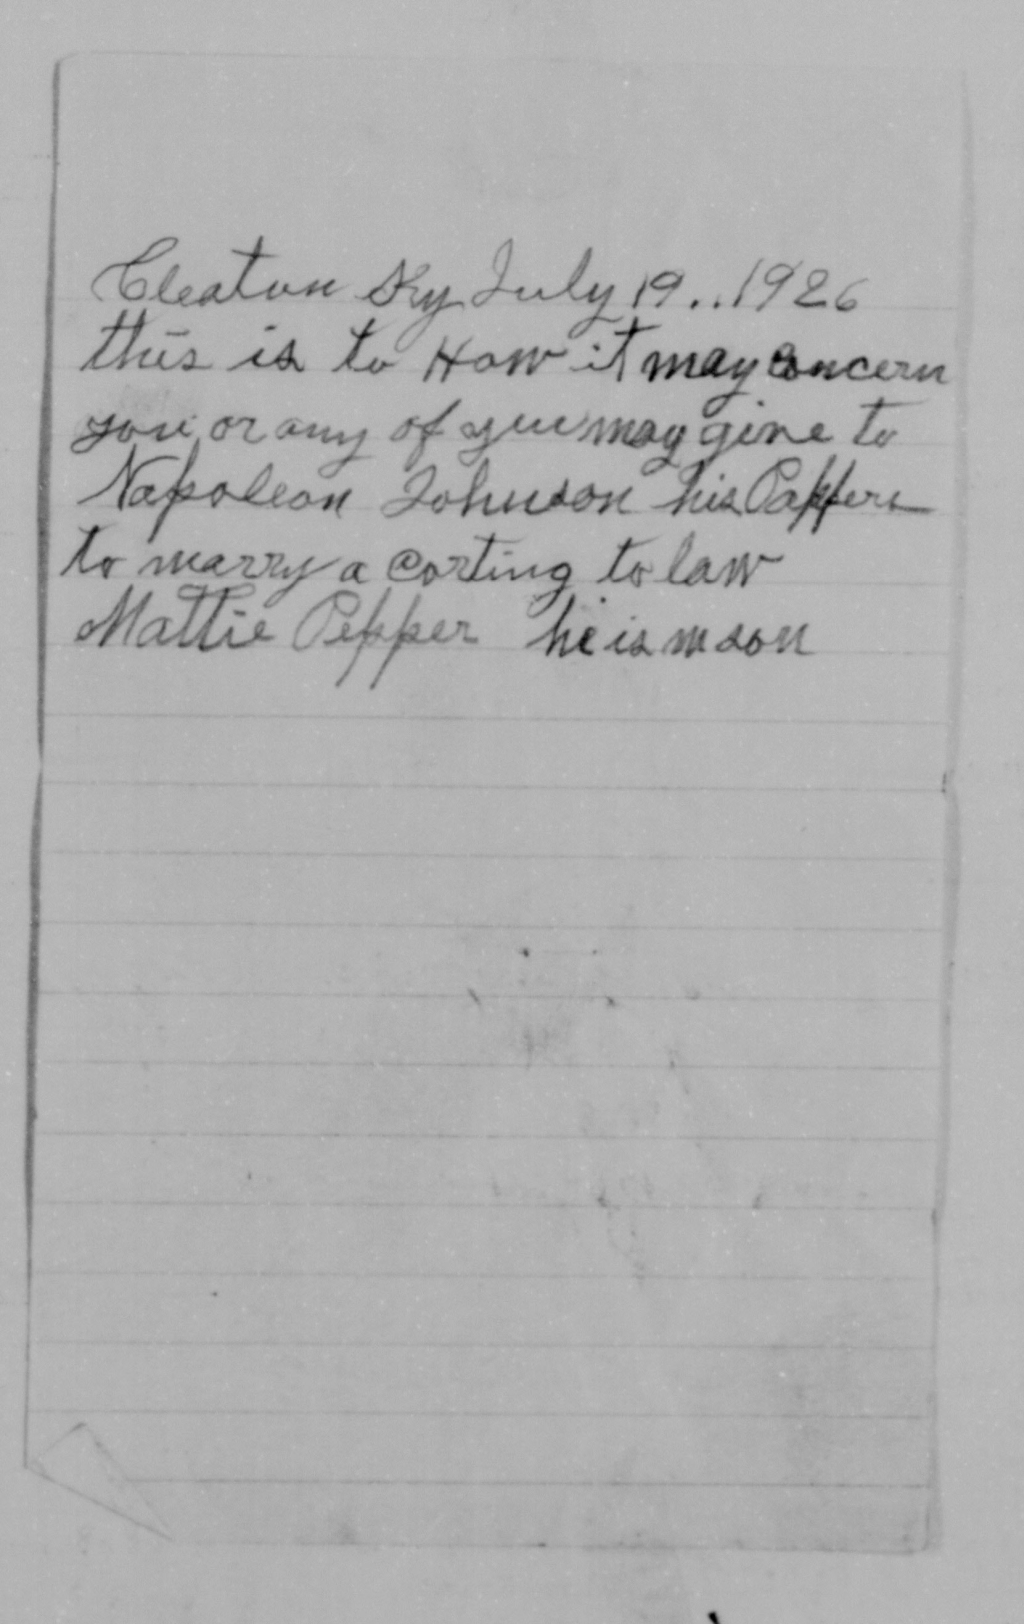 Cleaton Ky July 19..1926
this is to How it may concern
you or any of you may give to
Napoleon Johnson his Pappers
to marry a corting to law
Mattie Pepper he is m son